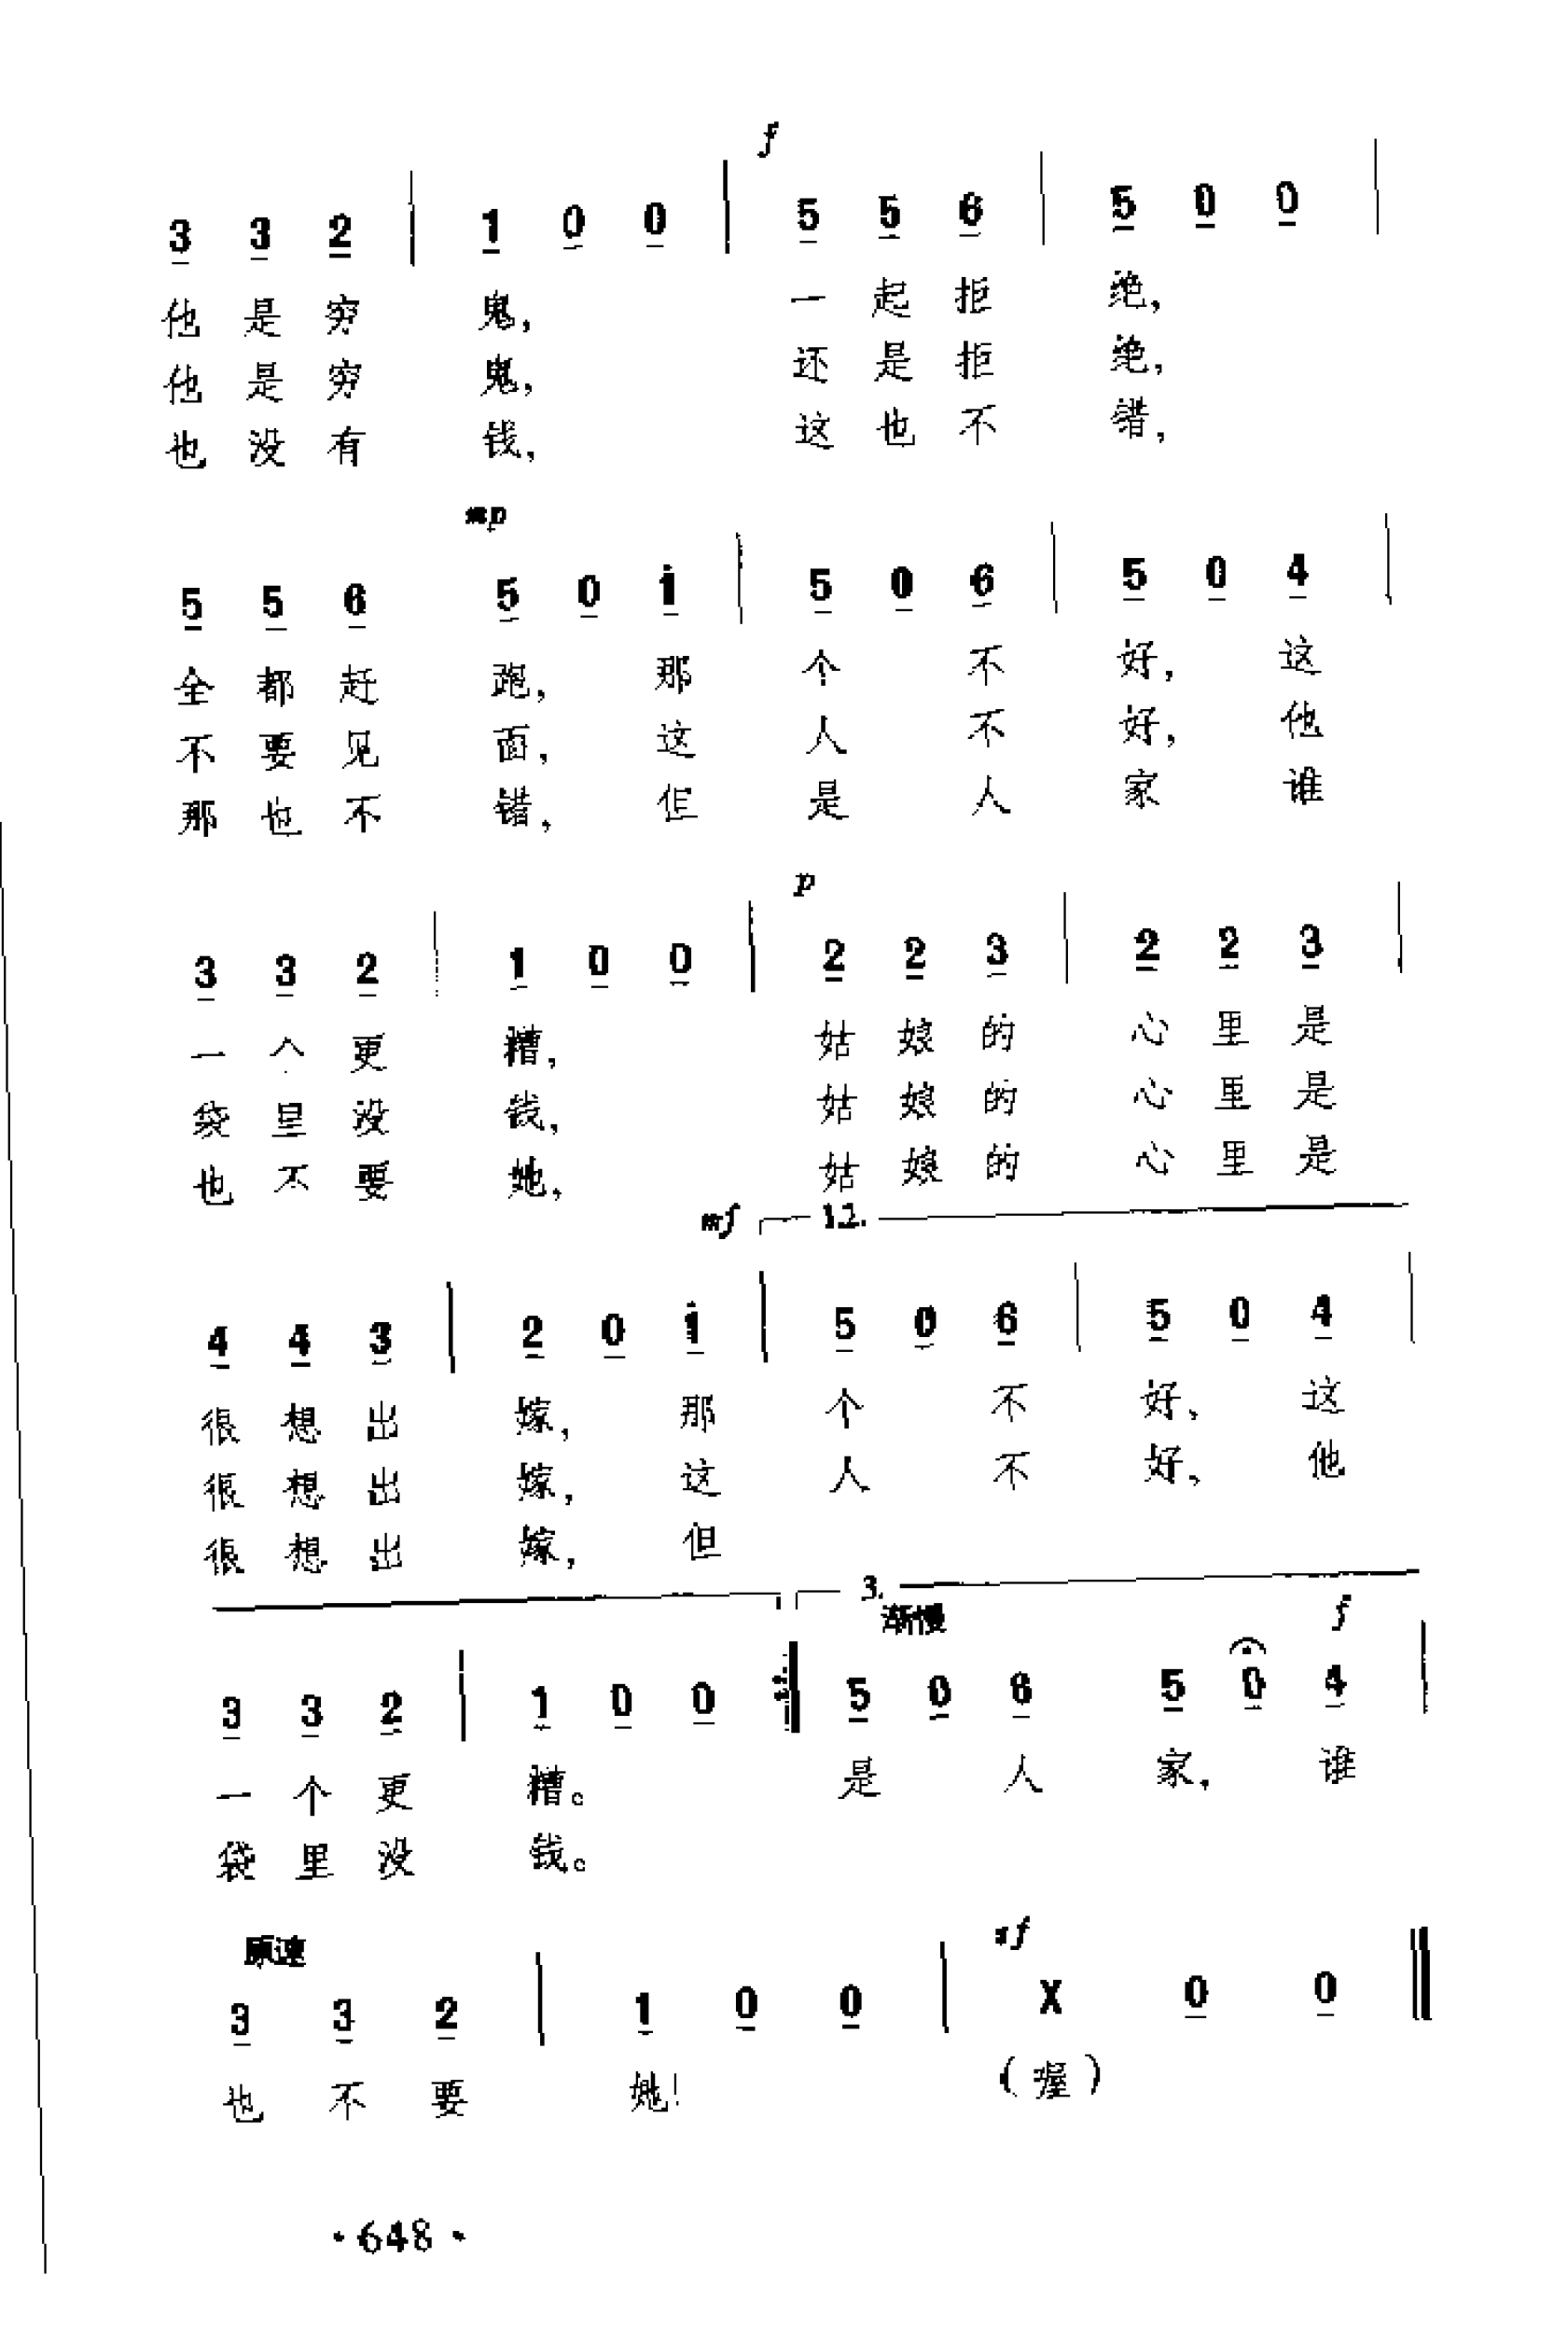 f
3 3 2 | 1 0 0 | 5 5 6 | 5 0 0 |
他 是 穷 鬼, 一 起 拒 绝,
他 是 穷 鬼, 还 是 拒 绝,
也 没 有 钱, 这 也 不 错,
mp
5 5 6 5 0 1̇ | 5 0 6 | 5 0 4 |
全 都 赶 跑, 那 个 不 好, 这
不 要 见 面, 这 人 不 好, 他
那 也 不 错, 但 是 人 家 谁
p
3 3 2 | 1 0 0 | 2 2 3 | 2 2 3 |
一 个 更 糟, 姑 娘 的 心 里 是
袋 里 没 钱, 姑 娘 的 心 里 是
也 不 要 她, 姑 娘 的 心 里 是
mf 1.2.
4 4 3 | 2 0 1̇ | 5 0 6 | 5 0 4 |
很 想 出 嫁, 那 个 不 好、 这
很 想 出 嫁, 这 人 不 好、 他
很 想 出 嫁, 但
3.
渐慢 f
3 3 2 | 1 0 0 :| 5 0 6 5 0 4 |
一 个 更 糟。 是 人 家, 谁
袋 里 没 钱。
原速 sf
3 3 2 | 1 0 0 | X 0 0 ‖
也 不 要 她! (喔)
·648·